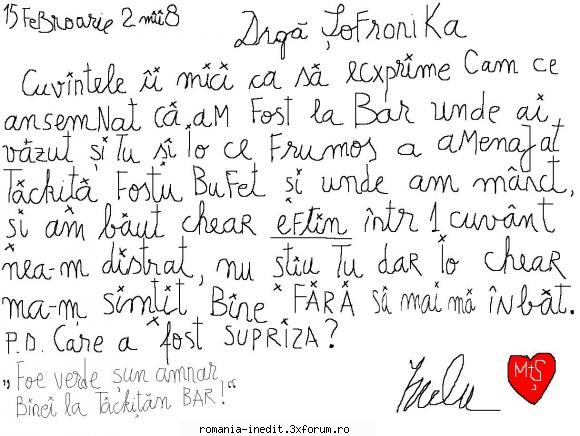 15 FeBroarie 2 mii8
Drgă ȘoFroniKa
Cuvintele ii mici ca să ecxprime Cam ce
ansemNat că aM Fost la Bar unde ai
văzut și Tu și Io ce Frumos a aMenaJat
Tăckiță Fostu BuFet și unde am mânct,
și am băut chear eftin într 1 cuvânt
nea-m distrat, nu știu Tu dar Io chear
ma-m simtit Bine FĂRĂ Să mai mă înbăt.
P.D. Care a fost SUPRIZA?
„Foe verde șun amnar
Binei la Tăckițăn BAR!"
MtȘ
romania-inedit.3xforum.ro